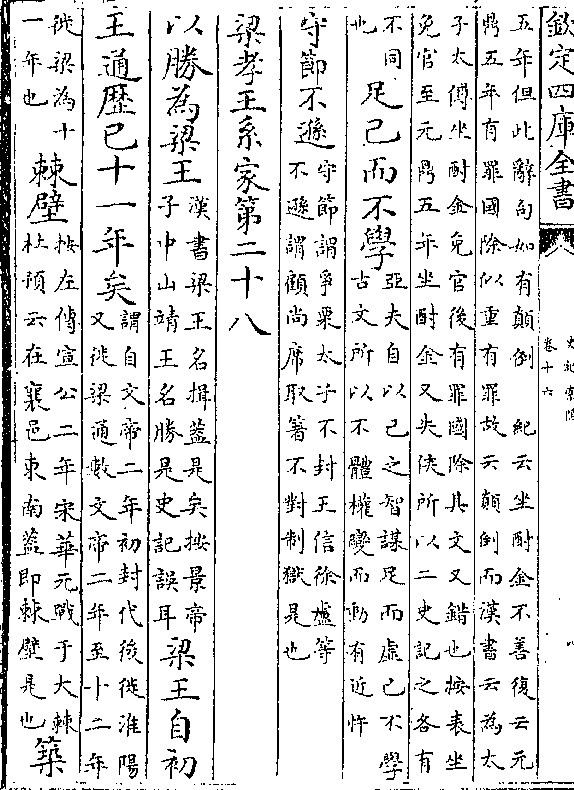 欽定四庫全書
史記索隱
卷十六
五年但此辭句如有顛倒 紀云坐酎金不善復云元
鼎五年有罪國除似重有罪故云顛倒而漢書云為太
子太傅坐酎金免官後有罪國除其文又錯也按表坐
免官至元鼎五年坐酎金又失侯所以二史記之各有
不同
也
足己而不學
亞夫自以己之智謀足而虛己不學
古文所以不體權變而動有近忤
守節不遜
守節謂爭粟太子不封王信徐盧等
不遜謂顧尚席取箸不對制獄是也
梁孝王系家第二十八
以勝為梁王
漢書梁王名揖葢是矣按景帝
子中山靖王名勝是史記誤耳
梁王自初
王通歴已十一年矣
謂自文帝二年初封代後徙淮陽
又徙梁通數文帝二年至十二年
徙梁為十
一年也
棘壁
按左傳宣公二年宋華元戰于大棘
杜預云在襄邑東南葢即棘壁是也
築